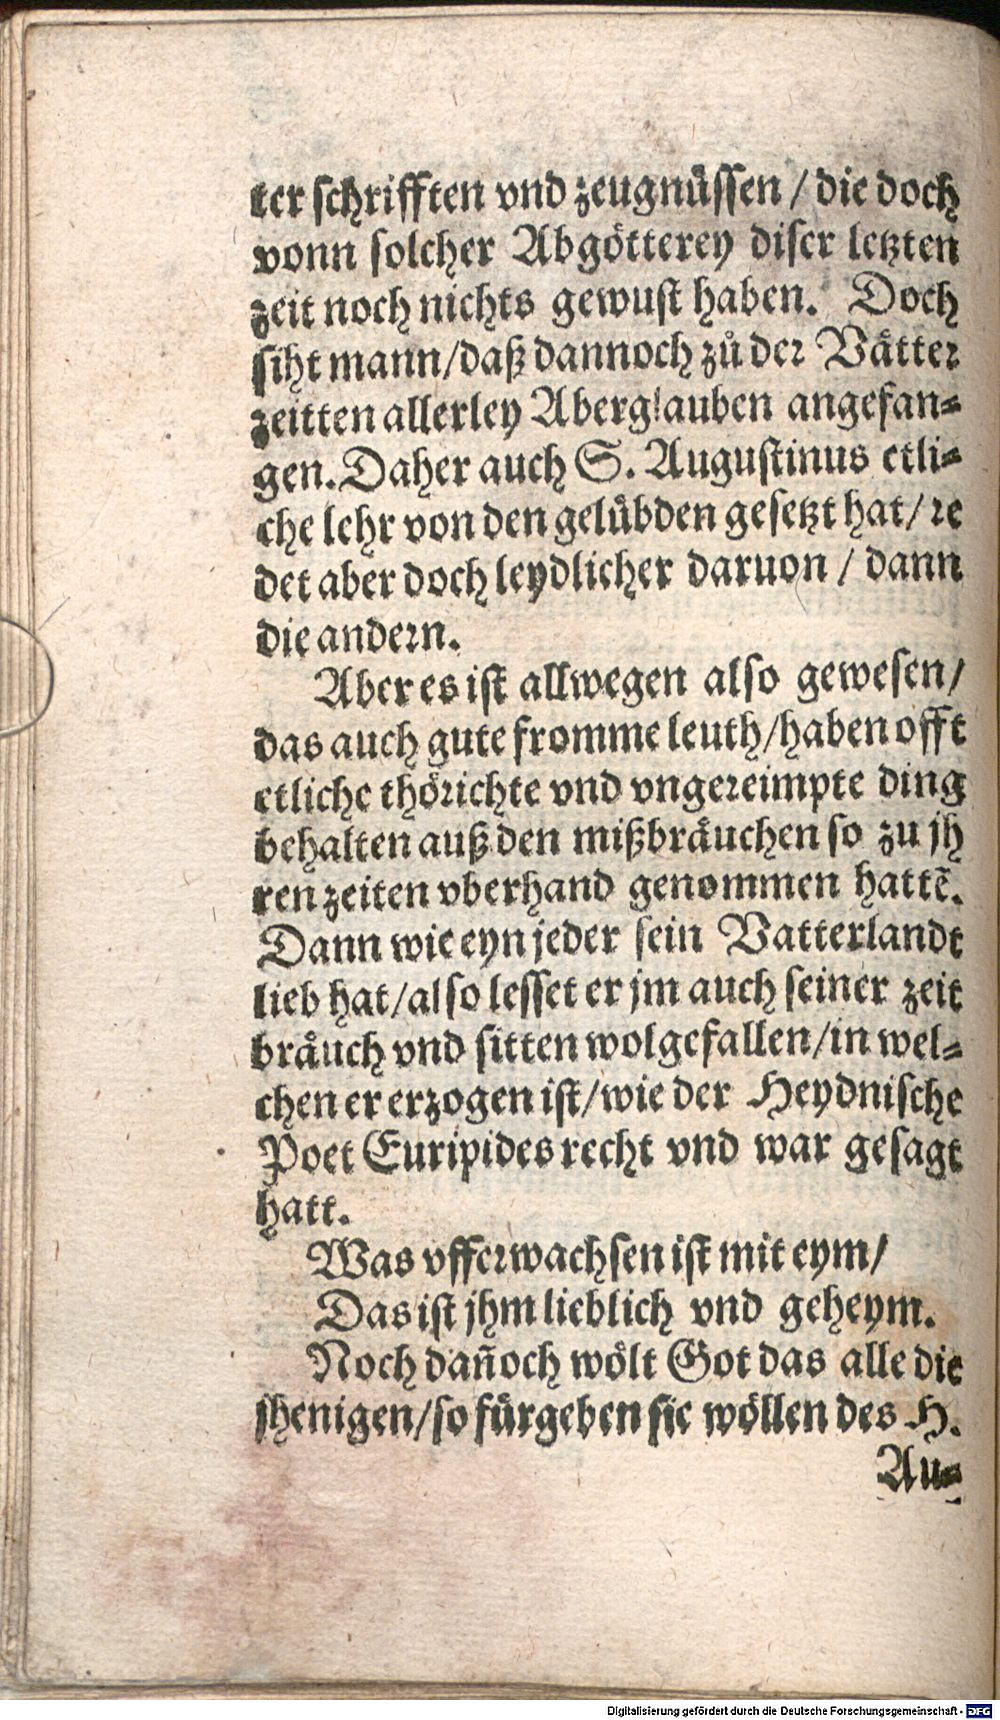 ter schrifften vnd zeugnüssen / die doch
vonn solcher Abgötterey diser letzten
zeit noch nichts gewust haben. Doch
siht mann/daß dannoch zů der Vätter
zeitten allerley Aberglauben angefan⸗
gen. Daher auch S. Augustinus etli⸗
che lehr von den gelübden gesetzt hat/ re
det aber doch leydlicher daruon / dann
die andern.
Aber es ist allwegen also gewesen/
das auch gute fromme leuth/haben offt
etliche thörichte vnd vngereimpte ding
behalten auß den mißbräuchen so zu jh
ren zeiten vberhand genommen hattẽ.
Dann wie eyn jeder sein Vatterlandt
lieb hat/also lesset er jm auch seiner zeit
bräuch vnd sitten wolgefallen/in wel⸗
chen er erzogen ist/wie der Heydnische
Poet Euripides recht vnd war gesagt
hatt.
Was vfferwachsen ist mit eym/
Das ist jhm lieblich vnd geheym.
Noch dañoch wölt Got das alle die
jhenigen/so fürgeben sie wöllen des H.
Au⸗
Digitalisierung gefördert durch die Deutsche Forschungsgemeinschaft - DFG